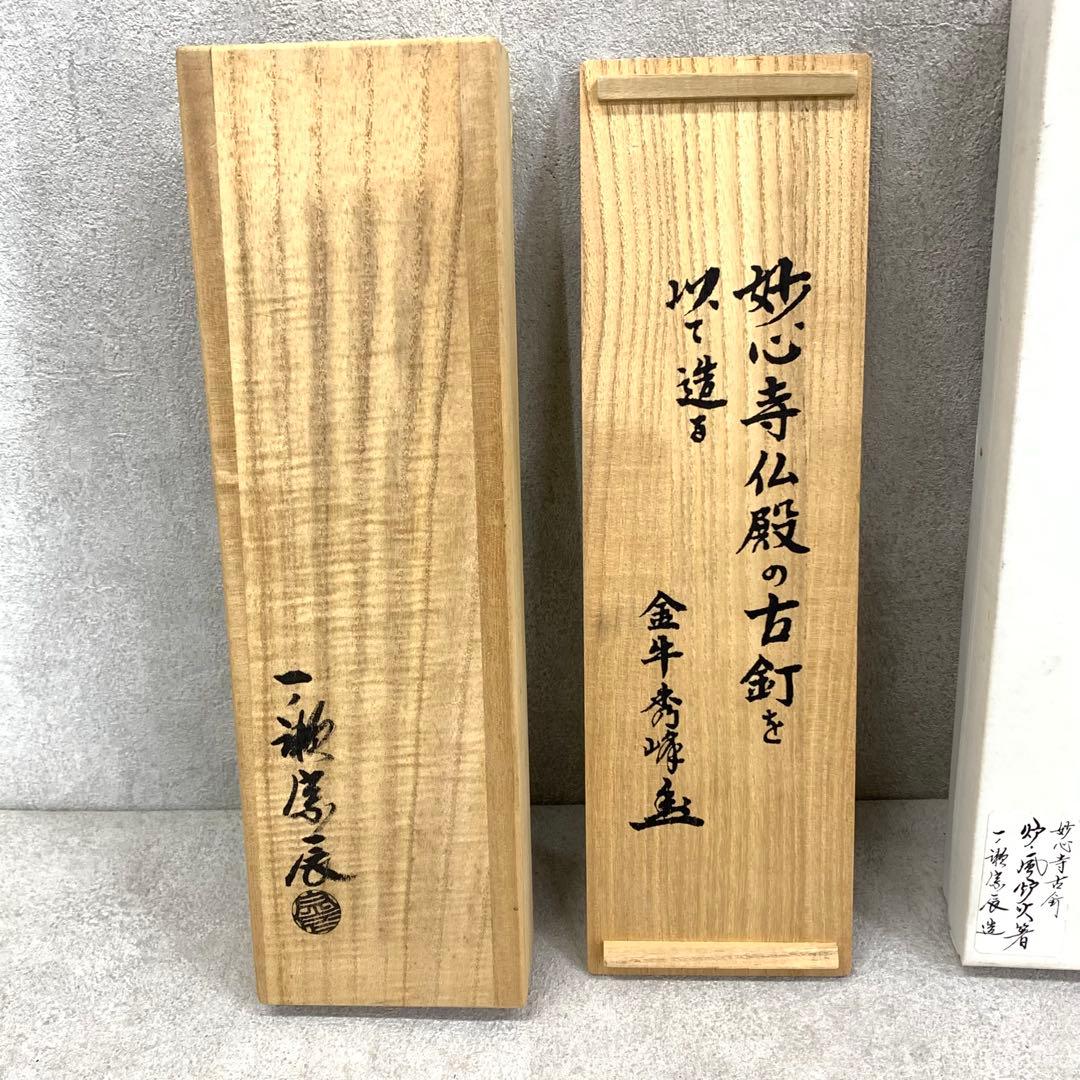 一ノ瀬宗辰
妙心寺仏殿の古釘を
以て造る
金牛秀峰
妙心寺古釘
炉・風炉火箸
一ノ瀬宗辰造